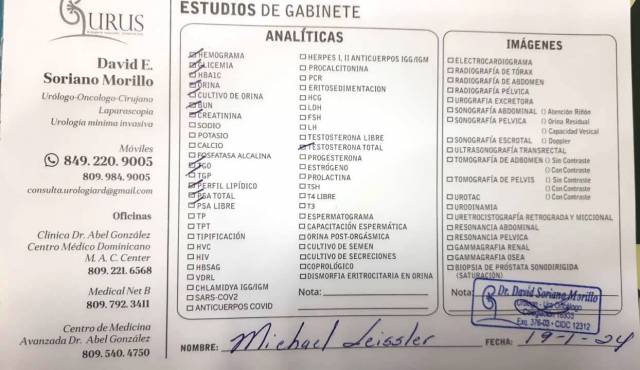 URUS
David E.
Soriano Morillo
Urólogo-Oncologo-Cirujano
Laparascopia
Urología mínima invasiva
Móviles
849.220.9005
809.984.9005
consulta.urologiard@gmail.com
Oficinas
Clinica Dr. Abel González
Centro Médico Dominicano
M. A. C. Center
809.221.6568
Medical Net B
809.792.3411
Centro de Medicina
Avanzada Dr. Abel González
809.540.4750
ESTUDIOS DE GABINETE
ANALÍTICAS
HEMOGRAMA
GLICEMIA
HBA1C
ORINA
CULTIVO DE ORINA
BUN
CREATININA
SODIO
POTASIO
CALCIO
FOSFATASA ALCALINA
TGO
TGP
PERFIL LIPÍDICO
PSA TOTAL
PSA LIBRE
TP
TPT
TIPIFICACIÓN
HVC
HIV
HBSAG
VDRL
CHLAMYDIA IGG/IGM
SARS-COV2
ANTICUERPOS COVID
HERPES I, II ANTICUERPOS IGG/IGM
PROCALCITONINA
PCR
ERITOSEDIMENTACION
HCG
LDH
FSH
LH
TESTOSTERONA LIBRE
TESTOSTERONA TOTAL
PROGESTERONA
ESTRÓGENO
PROLACTINA
TSH
T4 LIBRE
T3
ESPERMATOGRAMA
CAPACITACIÓN ESPERMÁTICA
ORINA POST-ORGÁSMICA
CULTIVO DE SEMEN
CULTIVO DE SECRECIONES
COPROLÓGICO
DISMORFIA ERITROCITARIA EN ORINA
Nota:
IMÁGENES
ELECTROCARDIOGRAMA
RADIOGRAFÍA DE TÓRAX
RADIOGRAFÍA DE ABDOMEN
RADIOGRAFÍA PÉLVICA
UROGRAFIA EXCRETORA
SONOGRAFÍA ABDOMINAL () Atención Riñón
SONOGRAFÍA PELVICA () Orina Residual
() Capacidad Vesical
SONOGRAFÍA ESCROTAL () Doppler
ULTRASONOGRAFÍA TRANSRECTAL
TOMOGRAFÍA DE ADBOMEN () Sin Contraste
() Con Contraste
TOMOGRAFÍA DE PELVIS () Sin Contraste
() Con Contraste
UROTAC
URODINAMIA
URETROCISTOGRAFÍA RETROGRADA Y MICCIONAL
RESONANCIA ABDOMINAL
RESONANCIA PELVICA
GAMMAGRAFIA RENAL
GAMMAGRAFIA OSEA
BIOPSIA DE PRÓSTATA SONODIRIGIDA
(SATURACIÓN)
Nota:
Dr. David Soriano Morillo
Exq. 376-03 • CIDC 12312
NOMBRE: Michael Leissler FECHA: 19-1-24